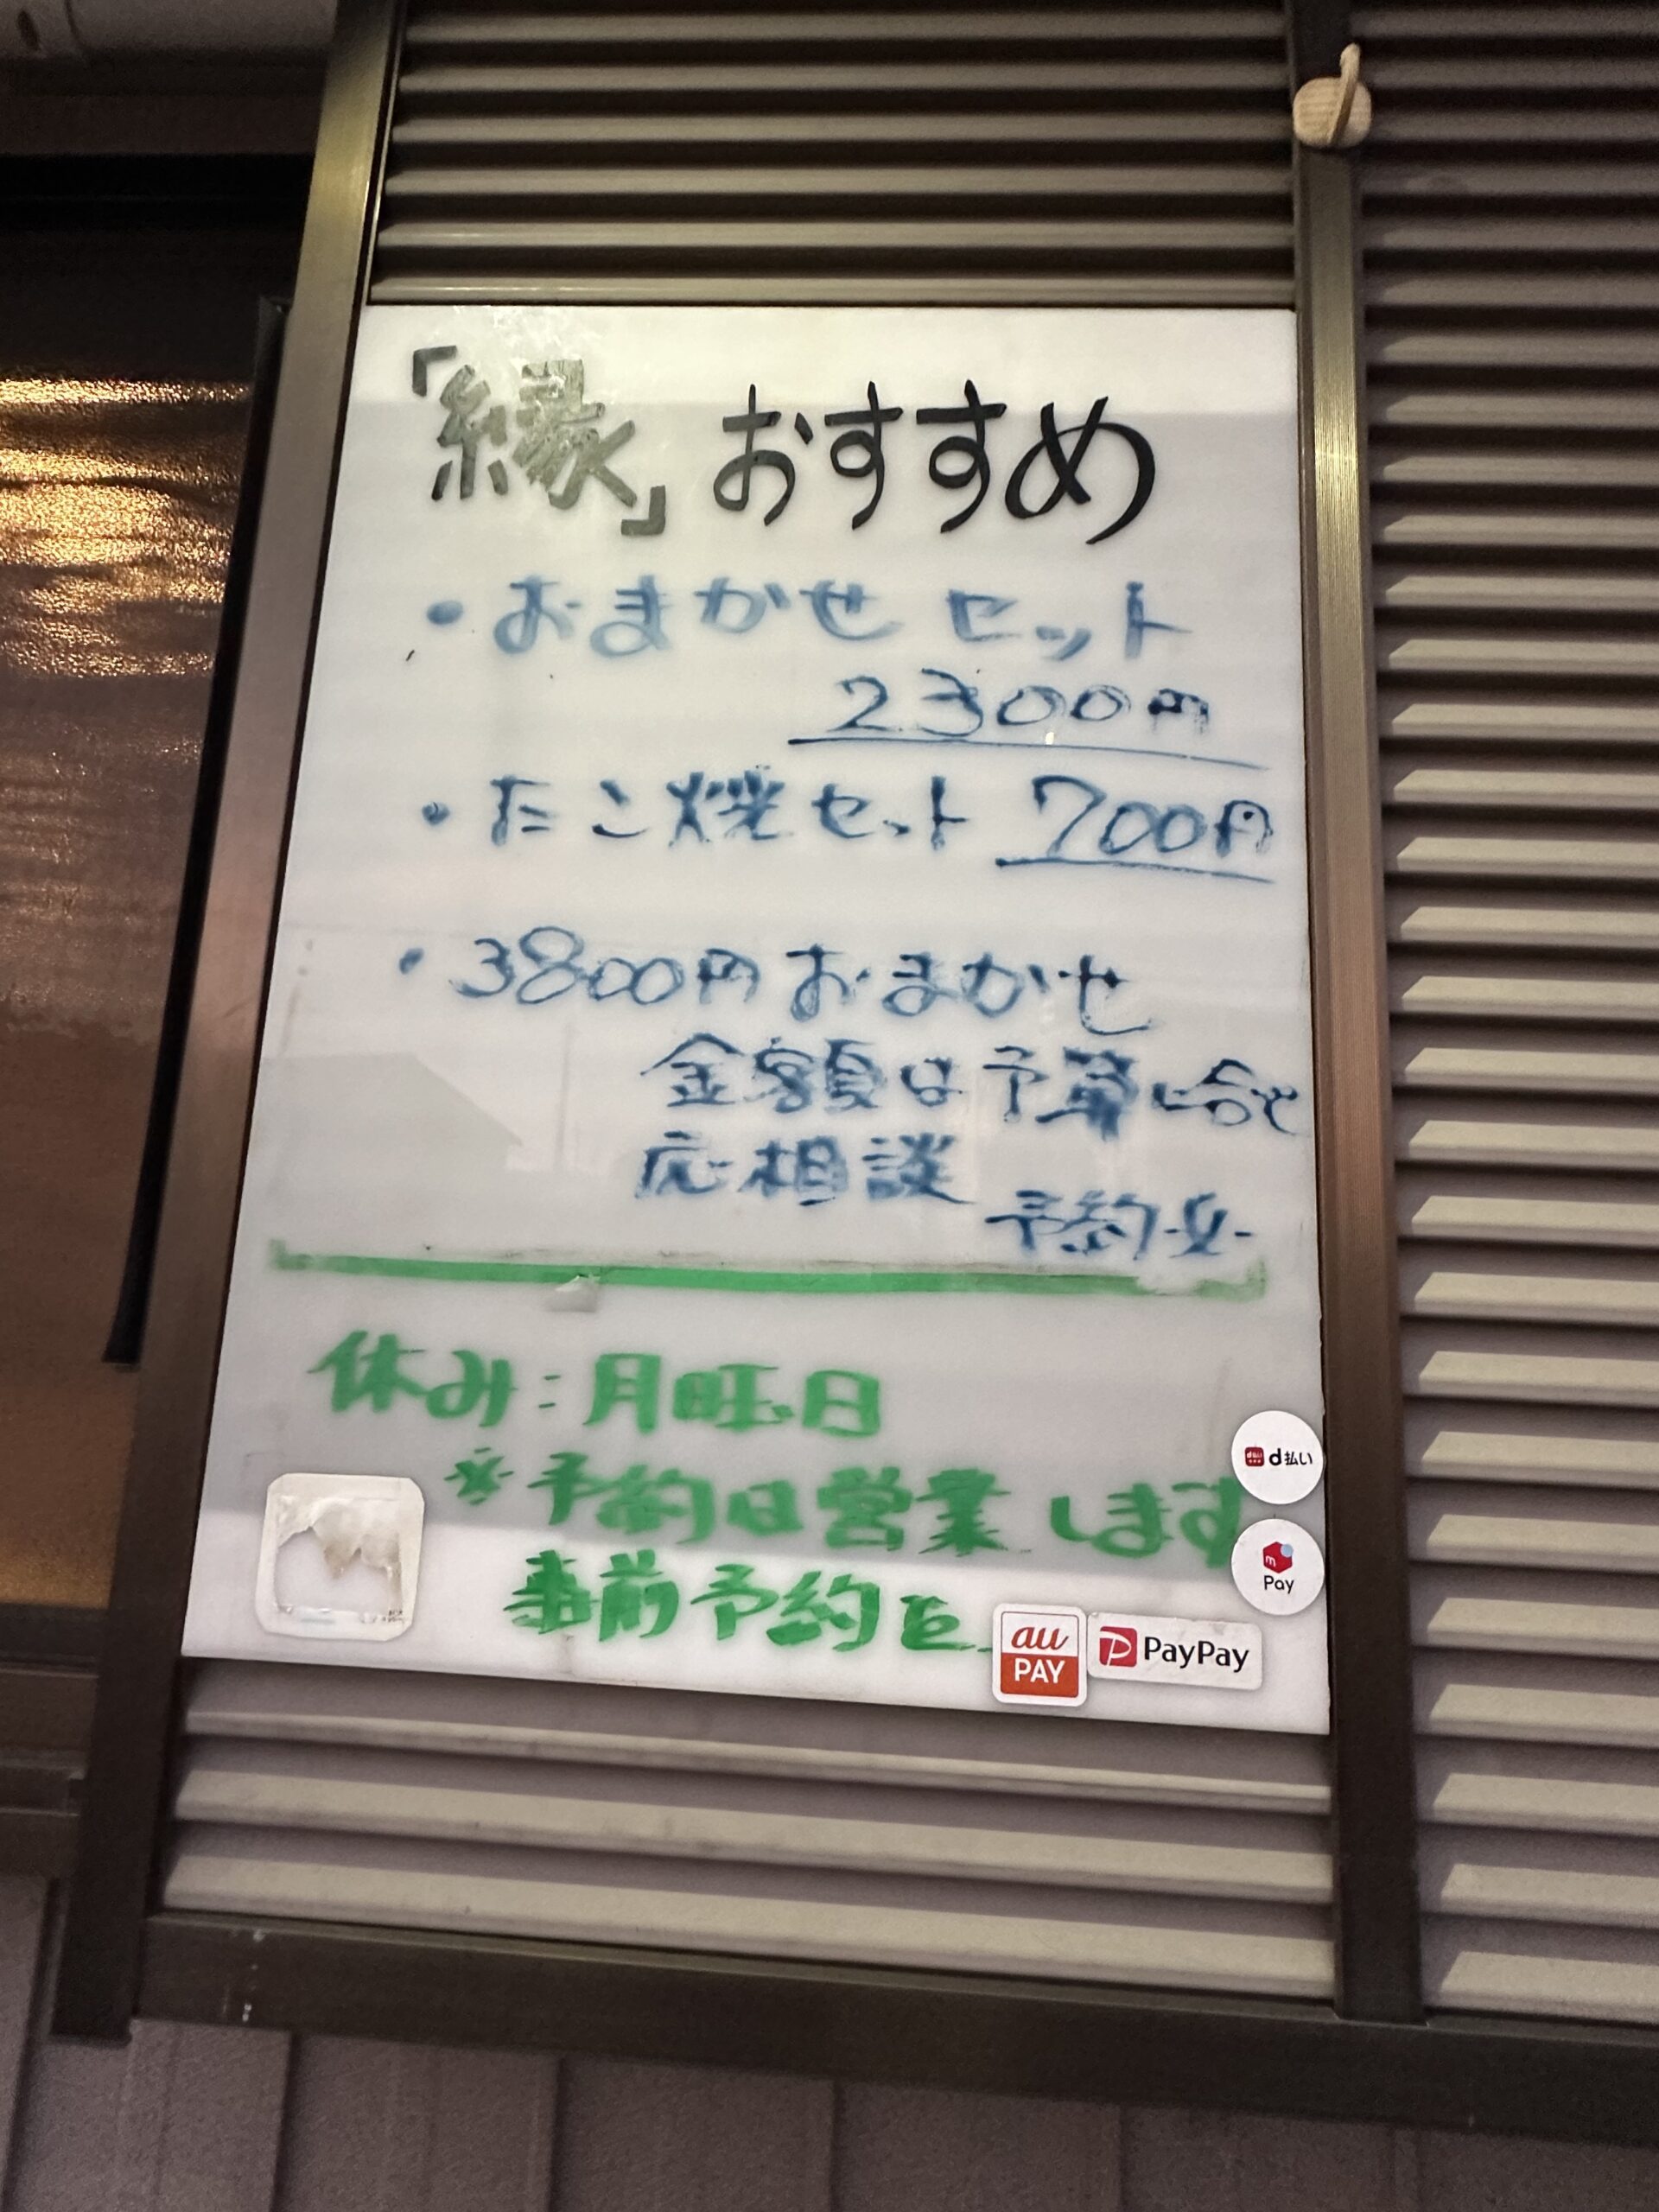 「縁」おすすめ
・おまかせセット
2300円
・たこ焼セット 700円
・3800円おまかせ
金額は予算に合せ
応相談
予約必
休み:月旺日
※予約は営業します
事前予約を
d払い
m Pay
au PAY
PayPay